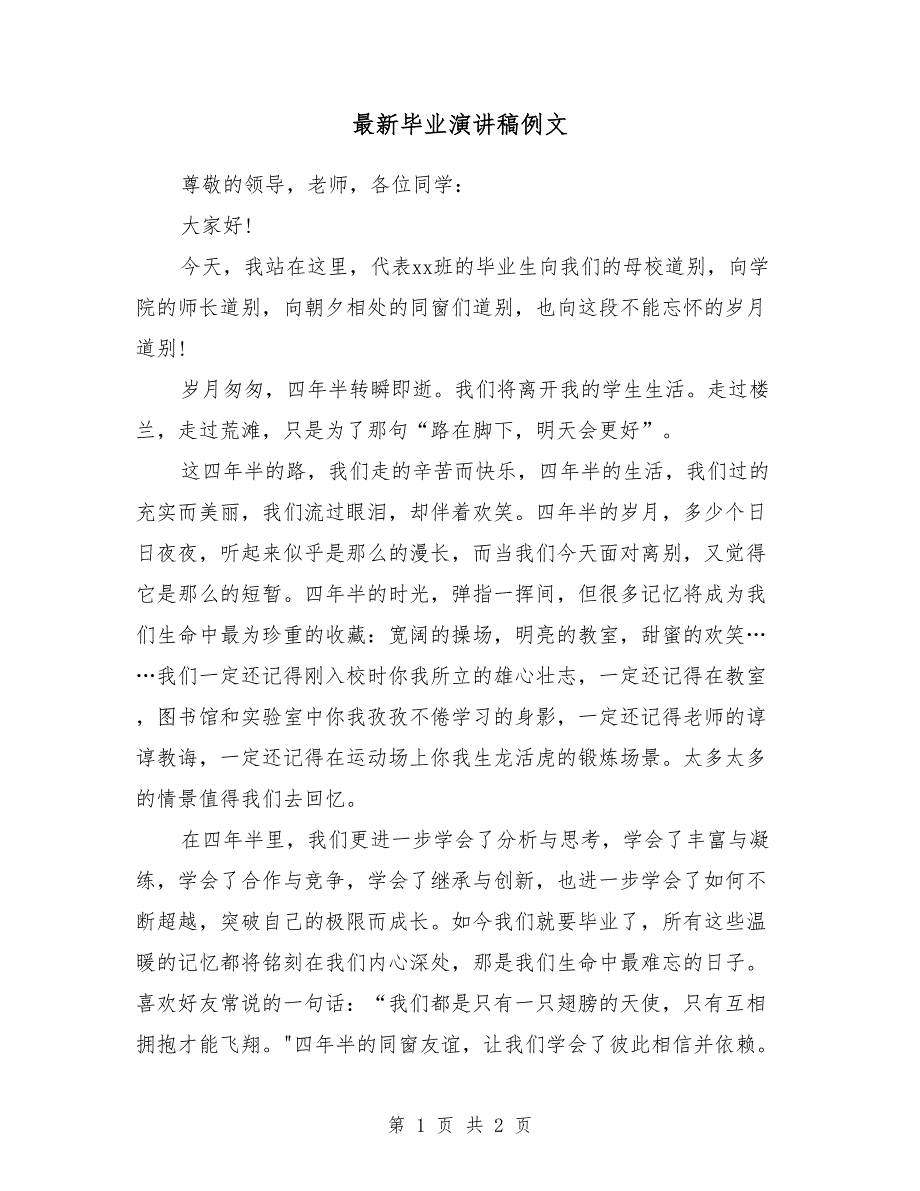 最新毕业演讲稿例文
尊敬的领导，老师，各位同学：
大家好！
今天，我站在这里，代表xx班的毕业生向我们的母校道别，向学
院的师长道别，向朝夕相处的同窗们道别，也向这段不能忘怀的岁月
道别！
岁月匆匆，四年半转瞬即逝。我们将离开我的学生生活。走过楼
兰，走过荒滩，只是为了那句“路在脚下，明天会更好”。
这四年半的路，我们走的辛苦而快乐，四年半的生活，我们过的
充实而美丽，我们流过眼泪，却伴着欢笑。四年半的岁月，多少个日
日夜夜，听起来似乎是那么的漫长，而当我们今天面对离别，又觉得
它是那么的短暂。四年半的时光，弹指一挥间，但很多记忆将成为我
们生命中最为珍重的收藏：宽阔的操场，明亮的教室，甜蜜的欢笑…
…我们一定还记得刚入校时你我所立的雄心壮志，一定还记得在教室
，图书馆和实验室中你我孜孜不倦学习的身影，一定还记得老师的谆
谆教诲，一定还记得在运动场上你我生龙活虎的锻炼场景。太多太多
的情景值得我们去回忆。
在四年半里，我们更进一步学会了分析与思考，学会了丰富与凝
练，学会了合作与竞争，学会了继承与创新，也进一步学会了如何不
断超越，突破自己的极限而成长。如今我们就要毕业了，所有这些温
暖的记忆都将铭刻在我们内心深处，那是我们生命中最难忘的日子。
喜欢好友常说的一句话：“我们都是只有一只翅膀的天使，只有互相
拥抱才能飞翔。"四年半的同窗友谊，让我们学会了彼此相信并依赖。
第 1 页 共 2 页